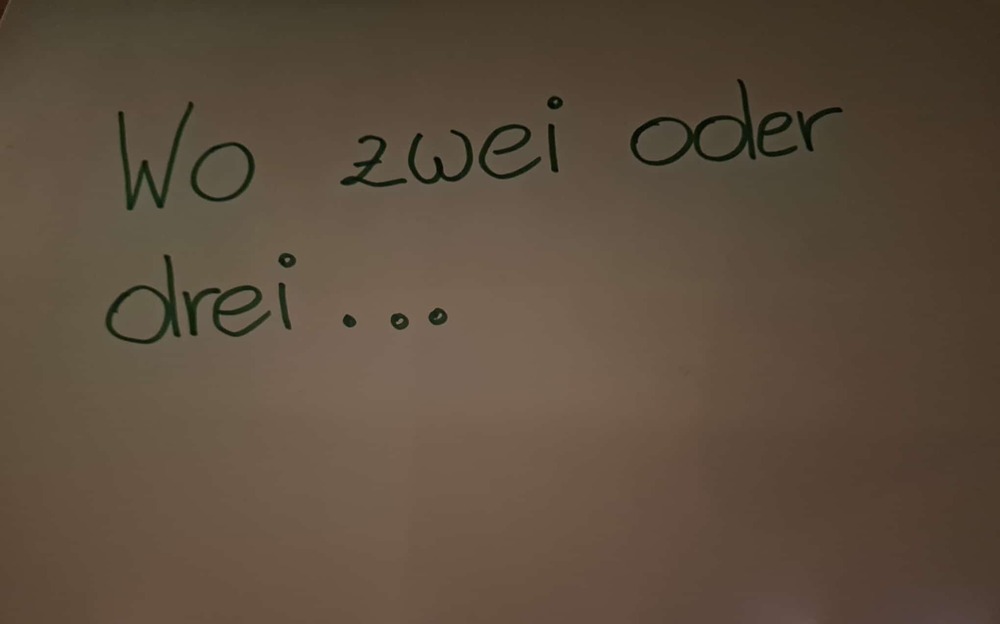 Wo zwei oder
drei ...